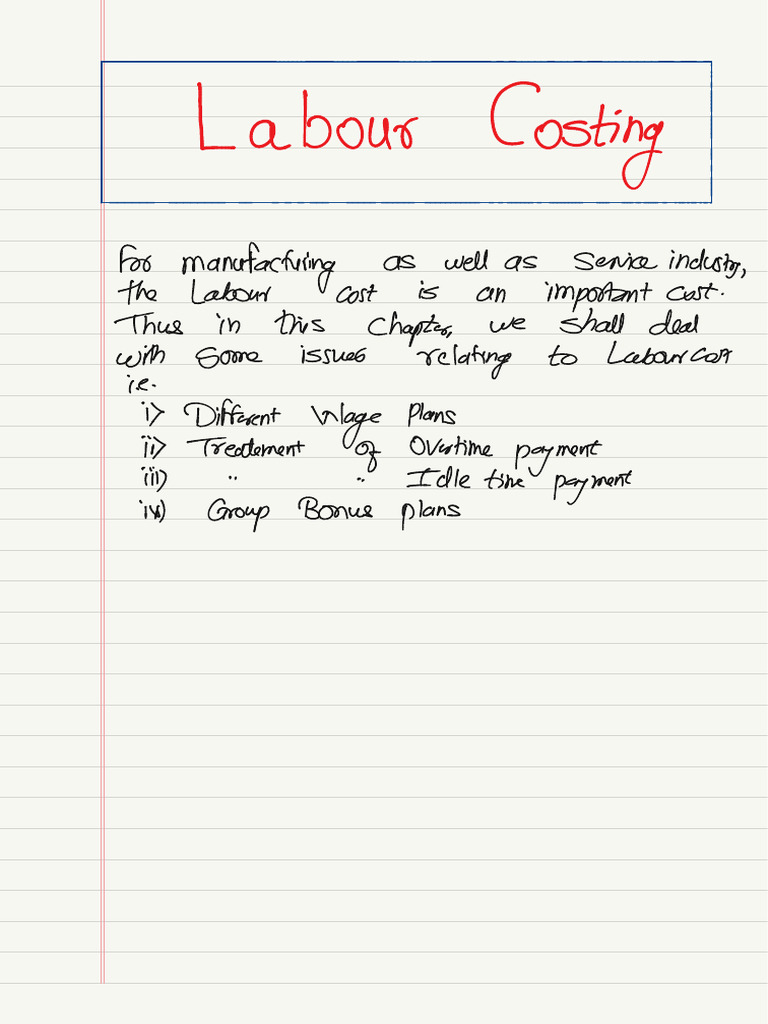 Labour Costing
For manufacturing as well as Service industry,
the Labour cost is an important cost.
Thus in this Chapter, we shall deal
with Some issues relating to Labour cost
i.e.
i) Different Wage Plans
ii) Treatement of Overtime payment
iii) " " Idle time payment
iv) Group Bonus plans